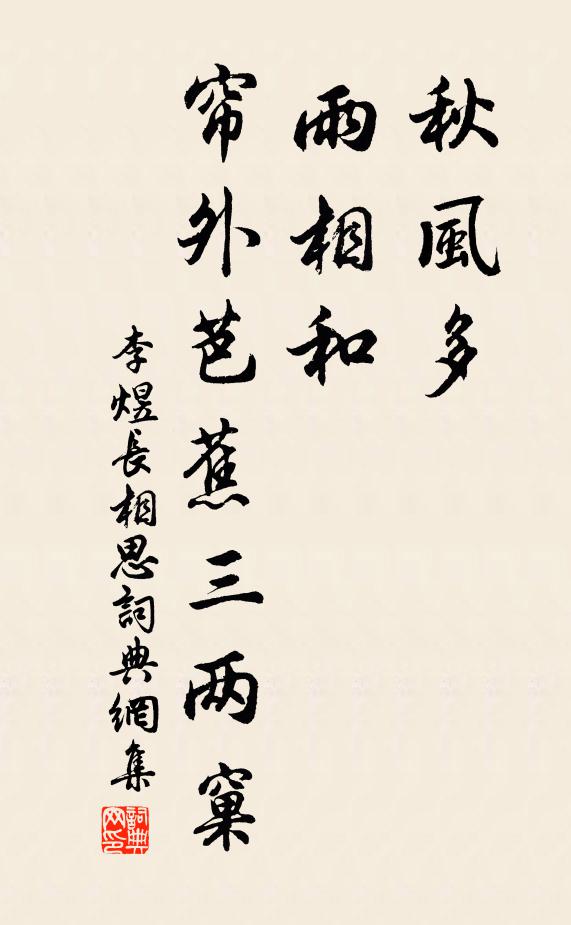 秋風多
雨相和
帘外芭蕉三两窠
李煜長相思詞典網集
詞典网印